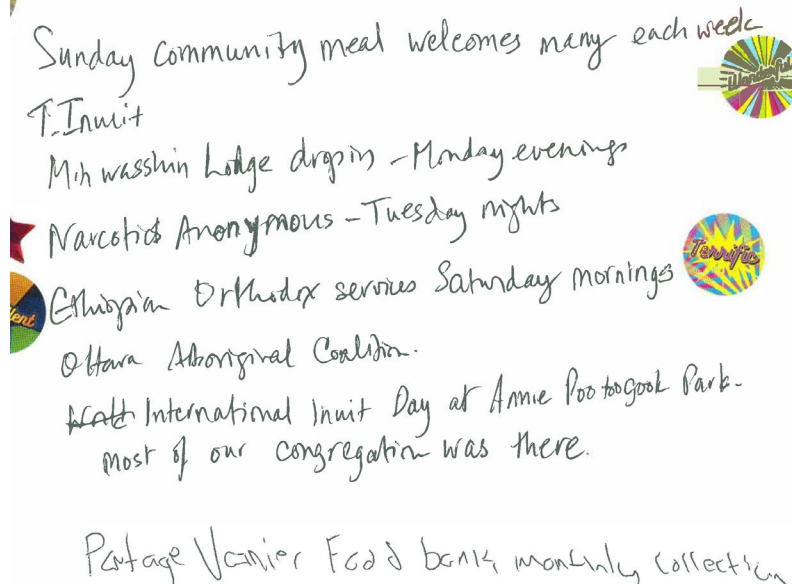 Sunday community meal welcomes many each week
Wonderful
T. Inuit
Minwasshin Lodge drop in - Monday evenings
Narcotics Anonymous - Tuesday nights
Terrific
Ethiopian Orthodox services Saturday mornings
lent
Ottawa Aboriginal Coalition.
International Inuit Day at Annie Pootoogook Park.
most of our congregation was there.
Partage Vanier Food bank monthly collection